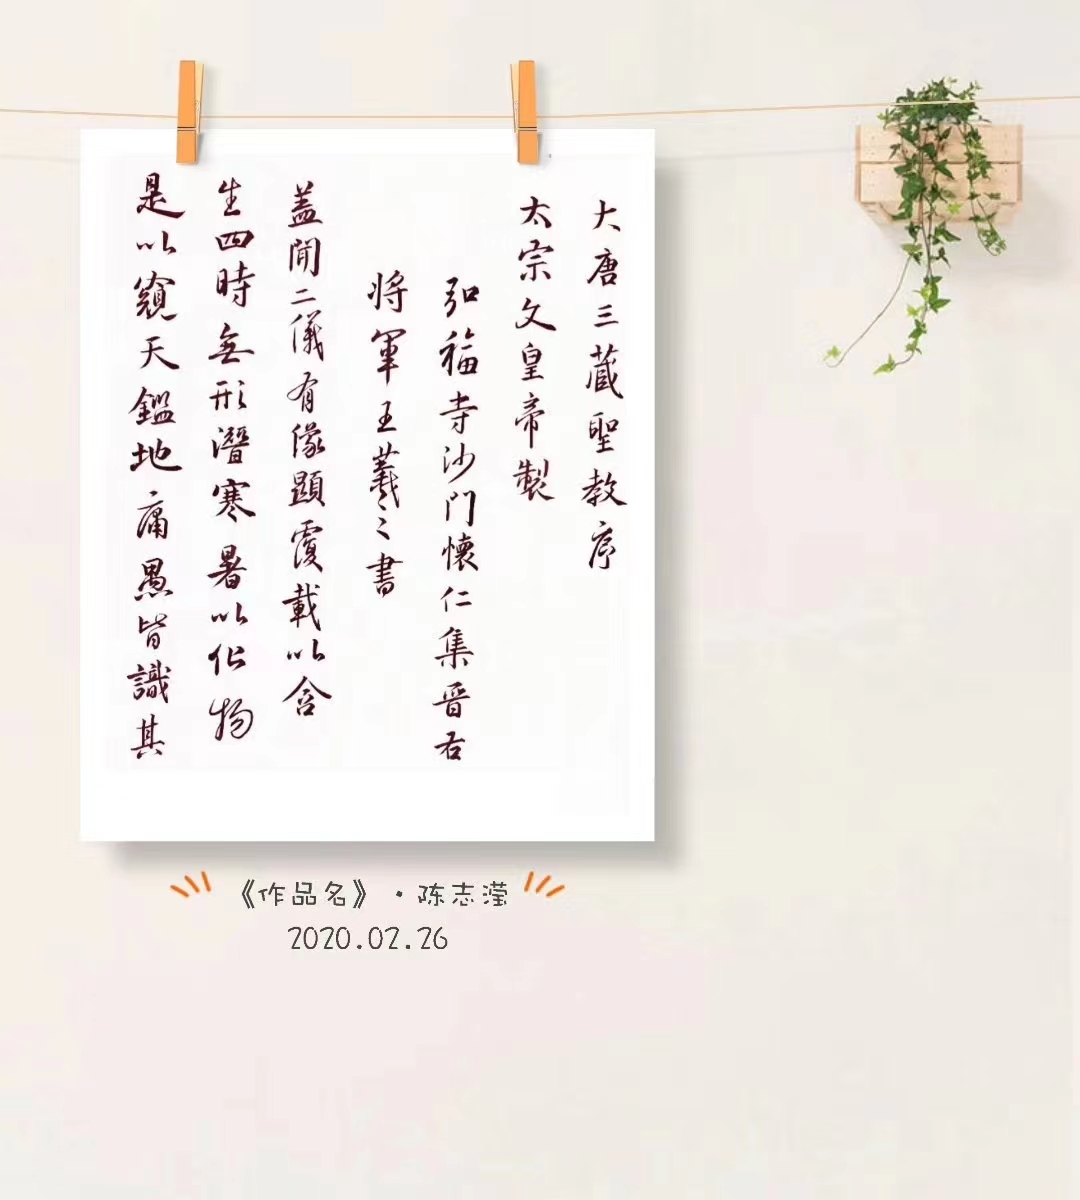 大唐三藏聖教序
太宗文皇帝製
弘福寺沙门懷仁集晋右
将軍王羲之書
盖聞二儀有像顯覆載以含
生四時無形潛寒暑以化物
是以窺天鑑地庸愚皆識其
《作品名》·陈志滢
2020.02.26